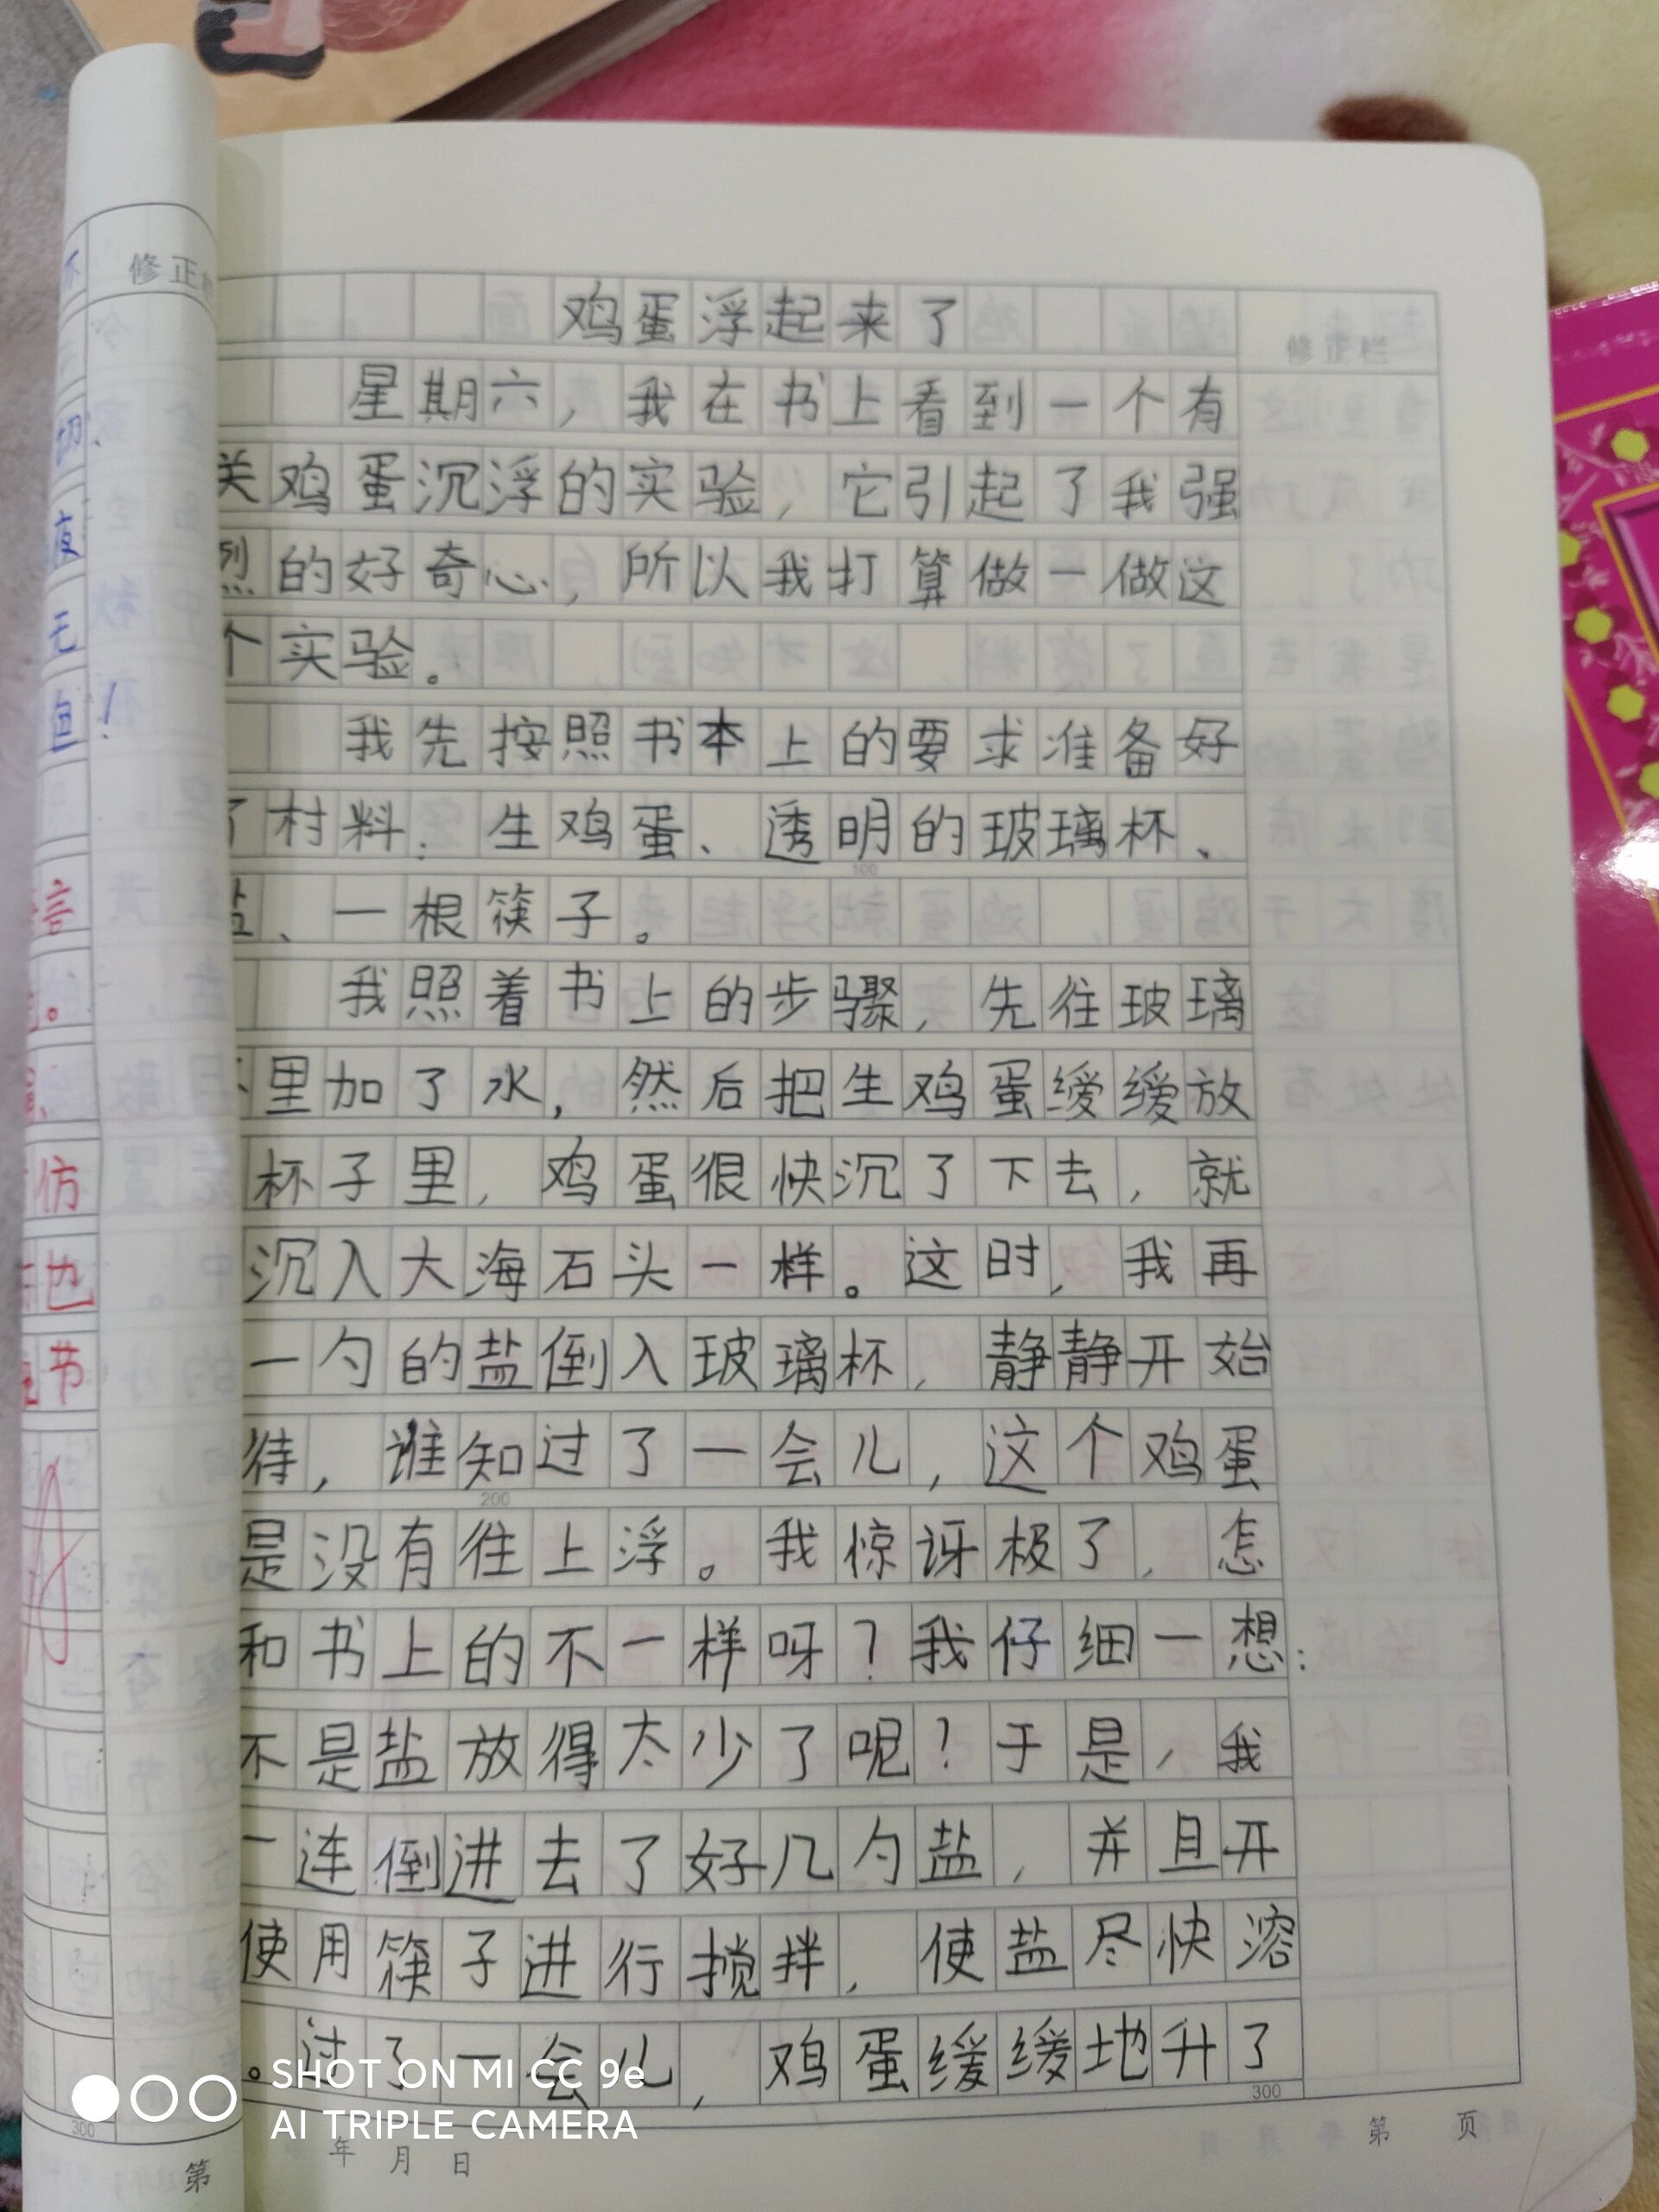 修正
鸡蛋浮起来了
修正栏
星期六，我在书上看到一个有
关鸡蛋沉浮的实验，它引起了我强
烈的好奇心，所以我打算做一做这
个实验。
我先按照书本上的要求准备好
了材料：生鸡蛋、透明的玻璃杯、
盐、一根筷子。
我照着书上的步骤，先往玻璃
里加了水，然后把生鸡蛋缓缓放
杯子里，鸡蛋很快沉了下去，就
沉入大海石头一样。这时，我再
一勺的盐倒入玻璃杯，静静开始
待，谁知过了一会儿，这个鸡蛋
是没有往上浮。我惊讶极了，怎
和书上的不一样呀？我仔细一想：
不是盐放得太少了呢？于是，我
一连倒进去了好几勺盐，并且开
使用筷子进行搅拌，使盐尽快溶
。过了一会儿，鸡蛋缓缓地升了
100
200
300
年 月 日
第 页
300
第
切、
夜
无
!
言
。
仿
也
节
SHOT ON MI CC 9e
AI TRIPLE CAMERA